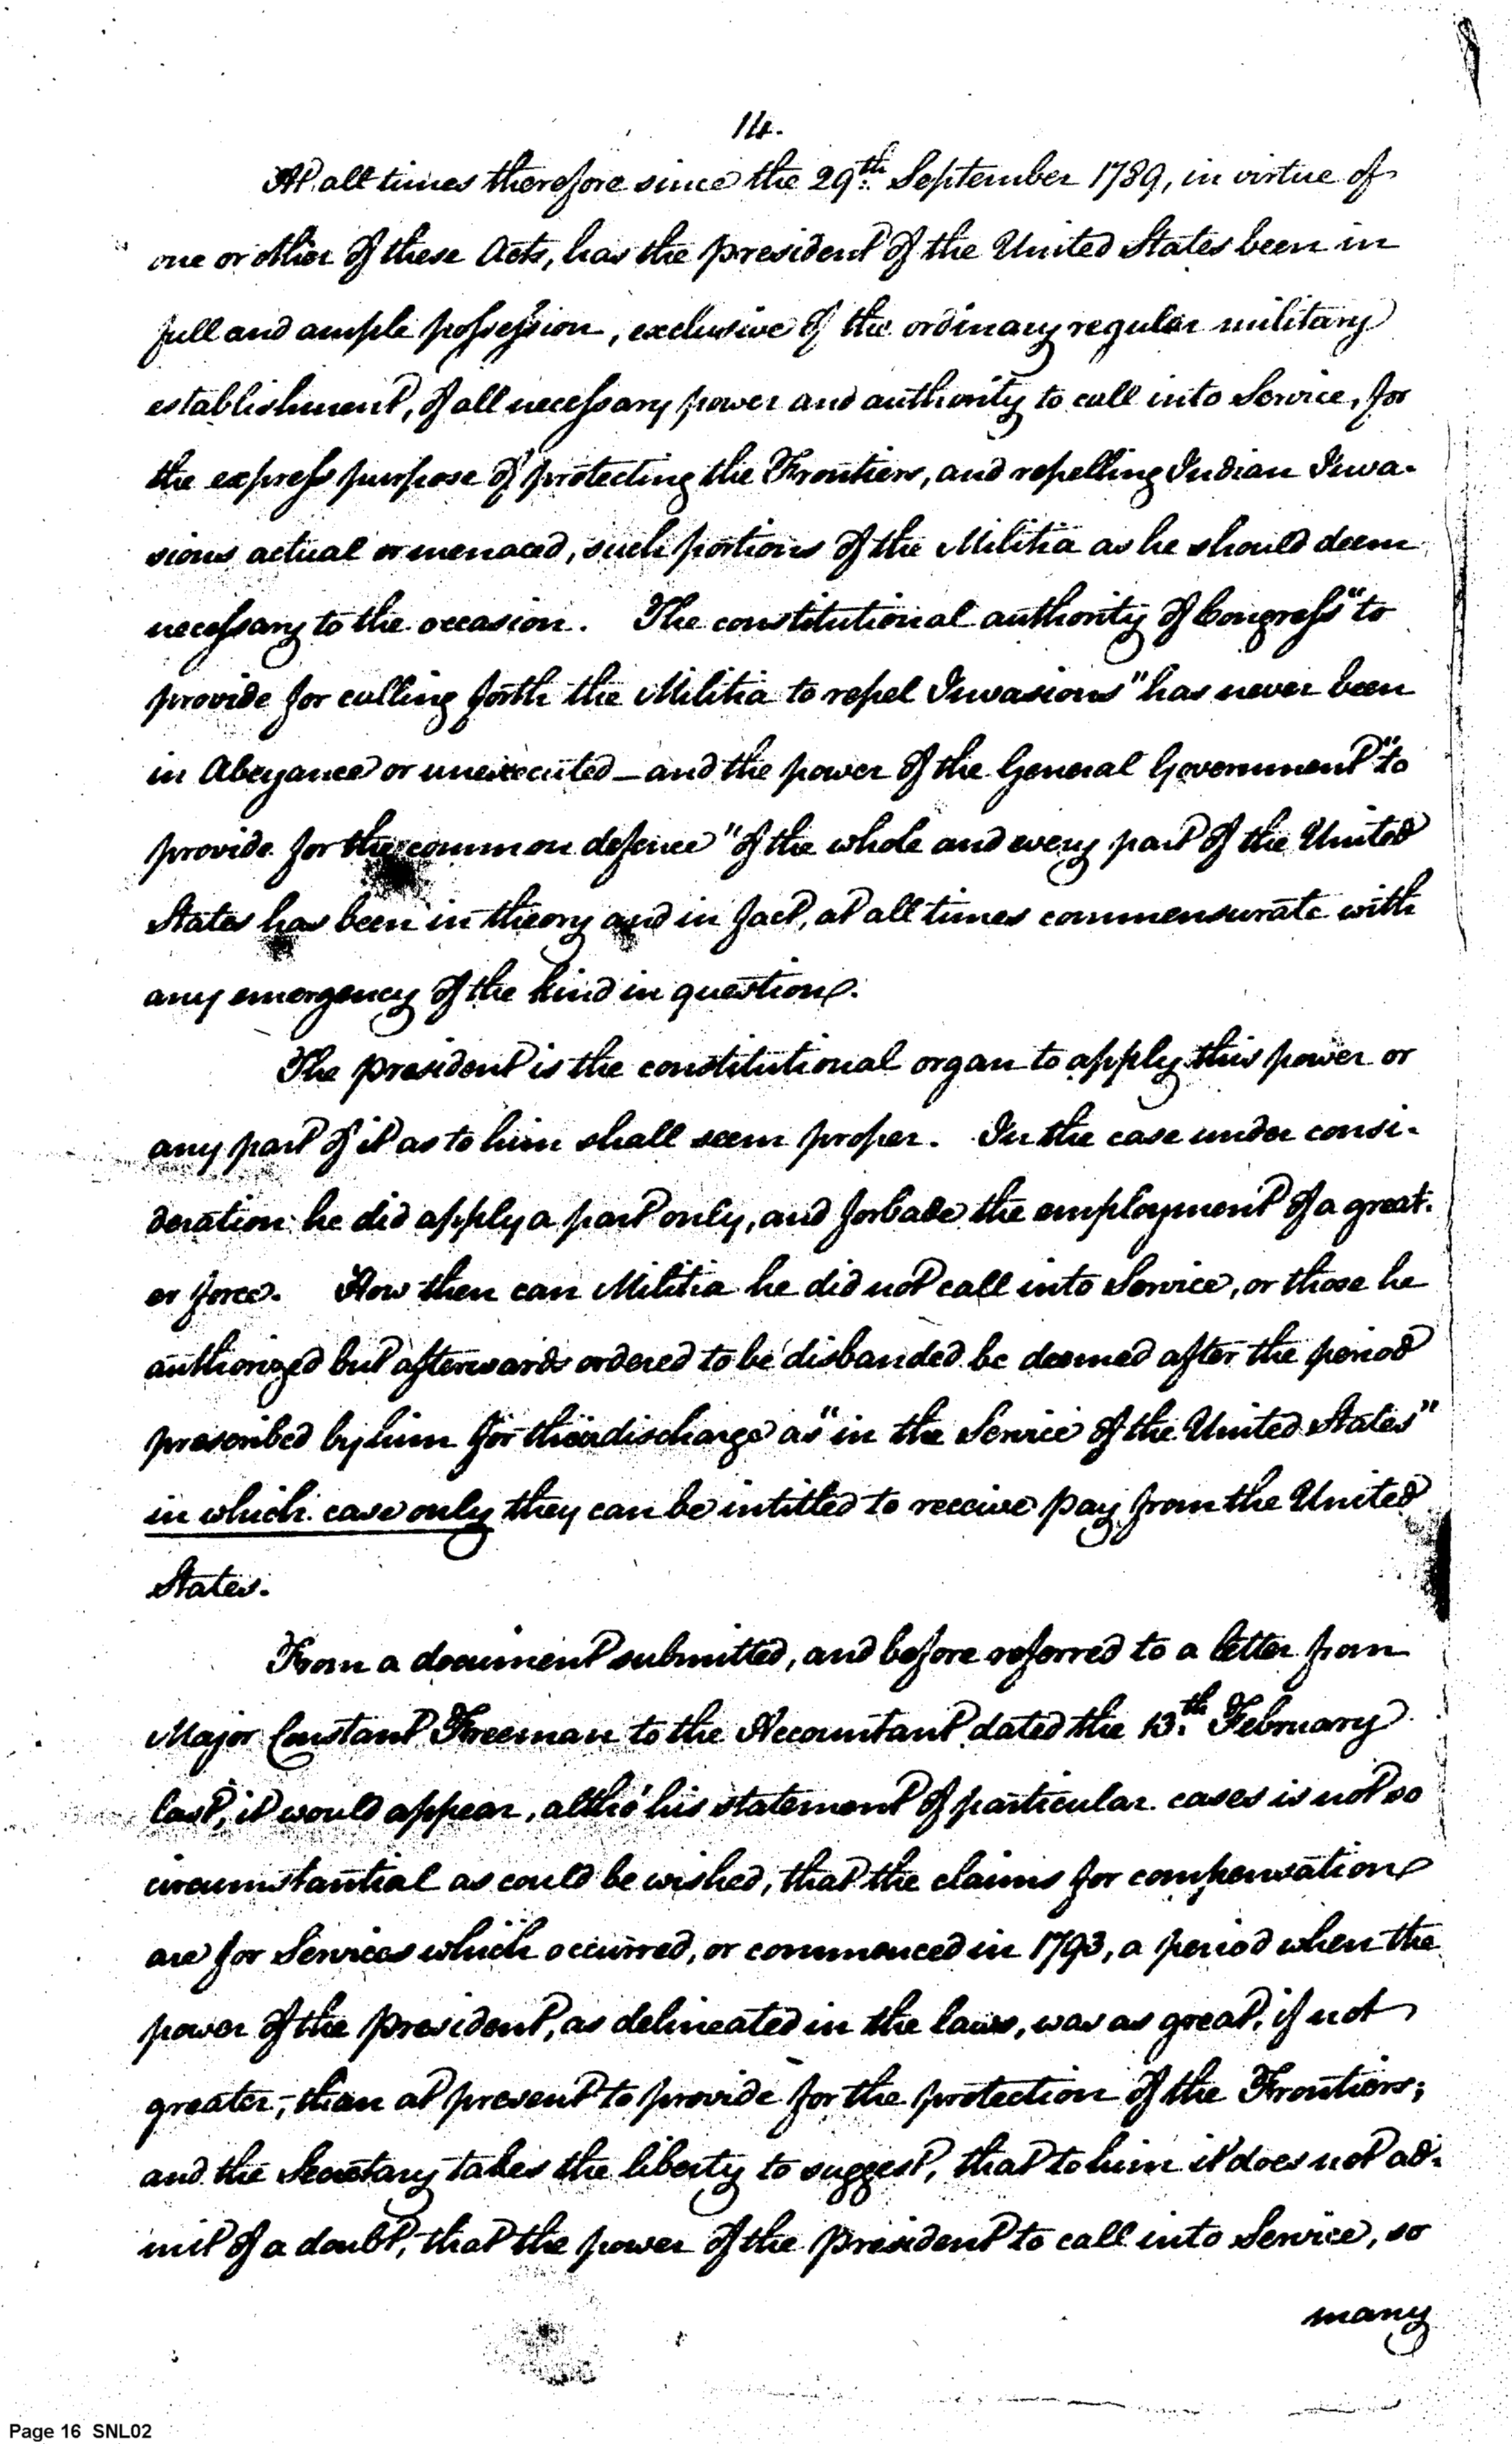 14.
At all times therefore since the 29th. September 1789, in virtue of
one or other of these Acts, has the president of the United States been in
full and ample possession, exclusive of the ordinary regular military
establishment, of all necessary power and authority to call into Service, for
the express purpose of protecting the Frontiers, and repelling Indian Inva-
sions actual or menaced, such portions of the Militia as he should deem
necessary to the occasion. The constitutional authority of Congress "to
provide for calling forth the Militia to repel Invasions" has never been
in Abeyance or unexecuted — and the power of the General Government "to
provide for the common defence" of the whole and every part of the United
States has been in theory and in fact, at all times commensurate with
any emergency of the kind in question.
The president is the constitutional organ to apply this power or
any part of it as to him shall seem proper. In the case under consi-
deration he did apply a part only, and forbade the employment of a great-
er force. How then can Militia he did not call into Service, or those he
authorized but afterwards ordered to be disbanded be deemed after the period
prescribed by him for their discharge as "in the Service of the United States"
in which case only they can be intitled to receive pay from the United
States.
From a document submitted, and before referred to a letter from
Major Constant Freeman to the Accountant dated the 13th. February
last, it would appear, altho' his statement of particular cases is not so
circumstantial as could be wished, that the claims for compensation
are for Services which occurred, or commenced in 1793, a period when the
power of the president, as delineated in the laws, was as great, if not
greater, than at present to provide for the protection of the Frontiers;
and the Secretary takes the liberty to suggest, that to him it does not ad-
mit of a doubt, that the power of the president to call into Service, so
many
Page 16 SNL02